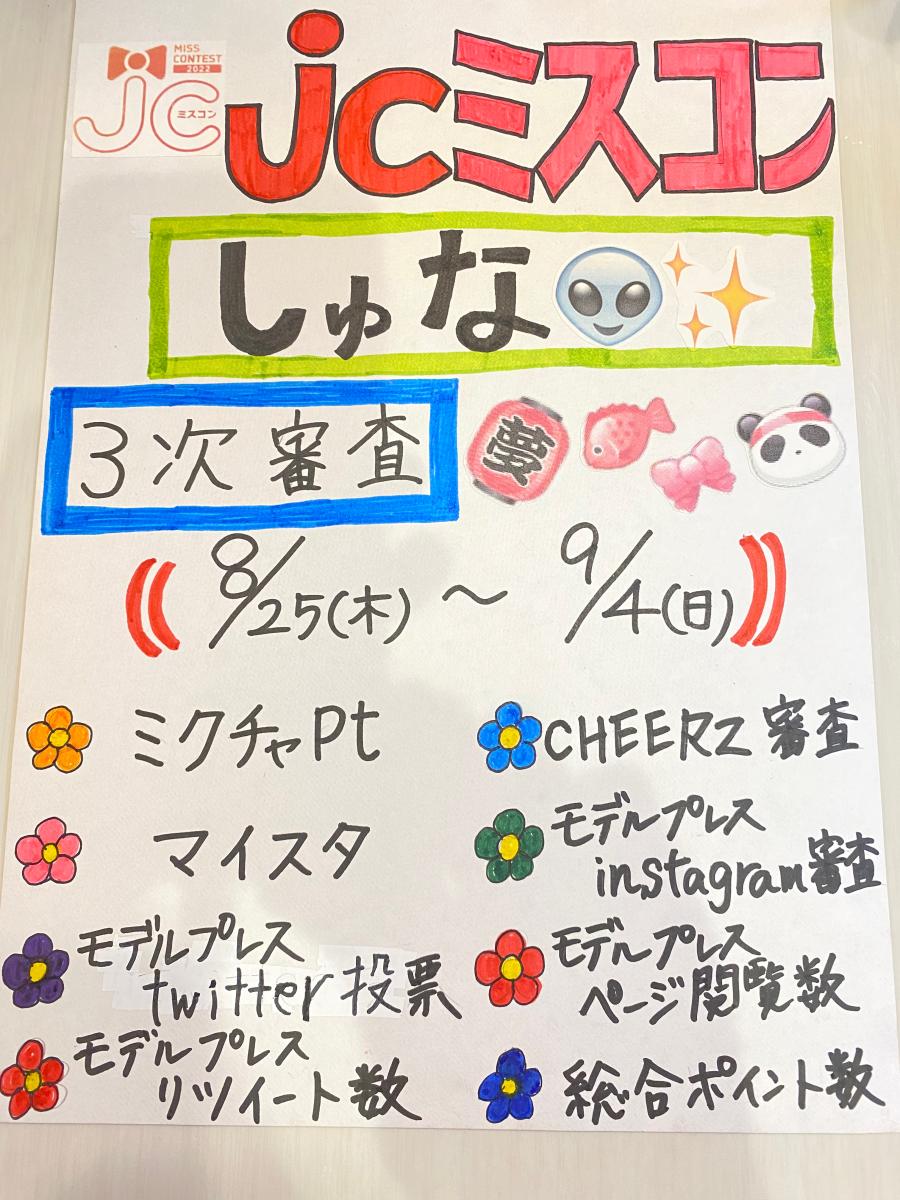 MISS
CONTEST
2022
JC ミスコン
jcミスコン
しゅな
3次審査
夢
8/25(木) ～ 9/4(日)
ミクチャpt
CHEERZ審査
マイスタ
モデルプレス
instagram審査
モデルプレス
twitter投票
モデルプレス
ページ閲覧数
モデルプレス
リツイート数
総合ポイント数